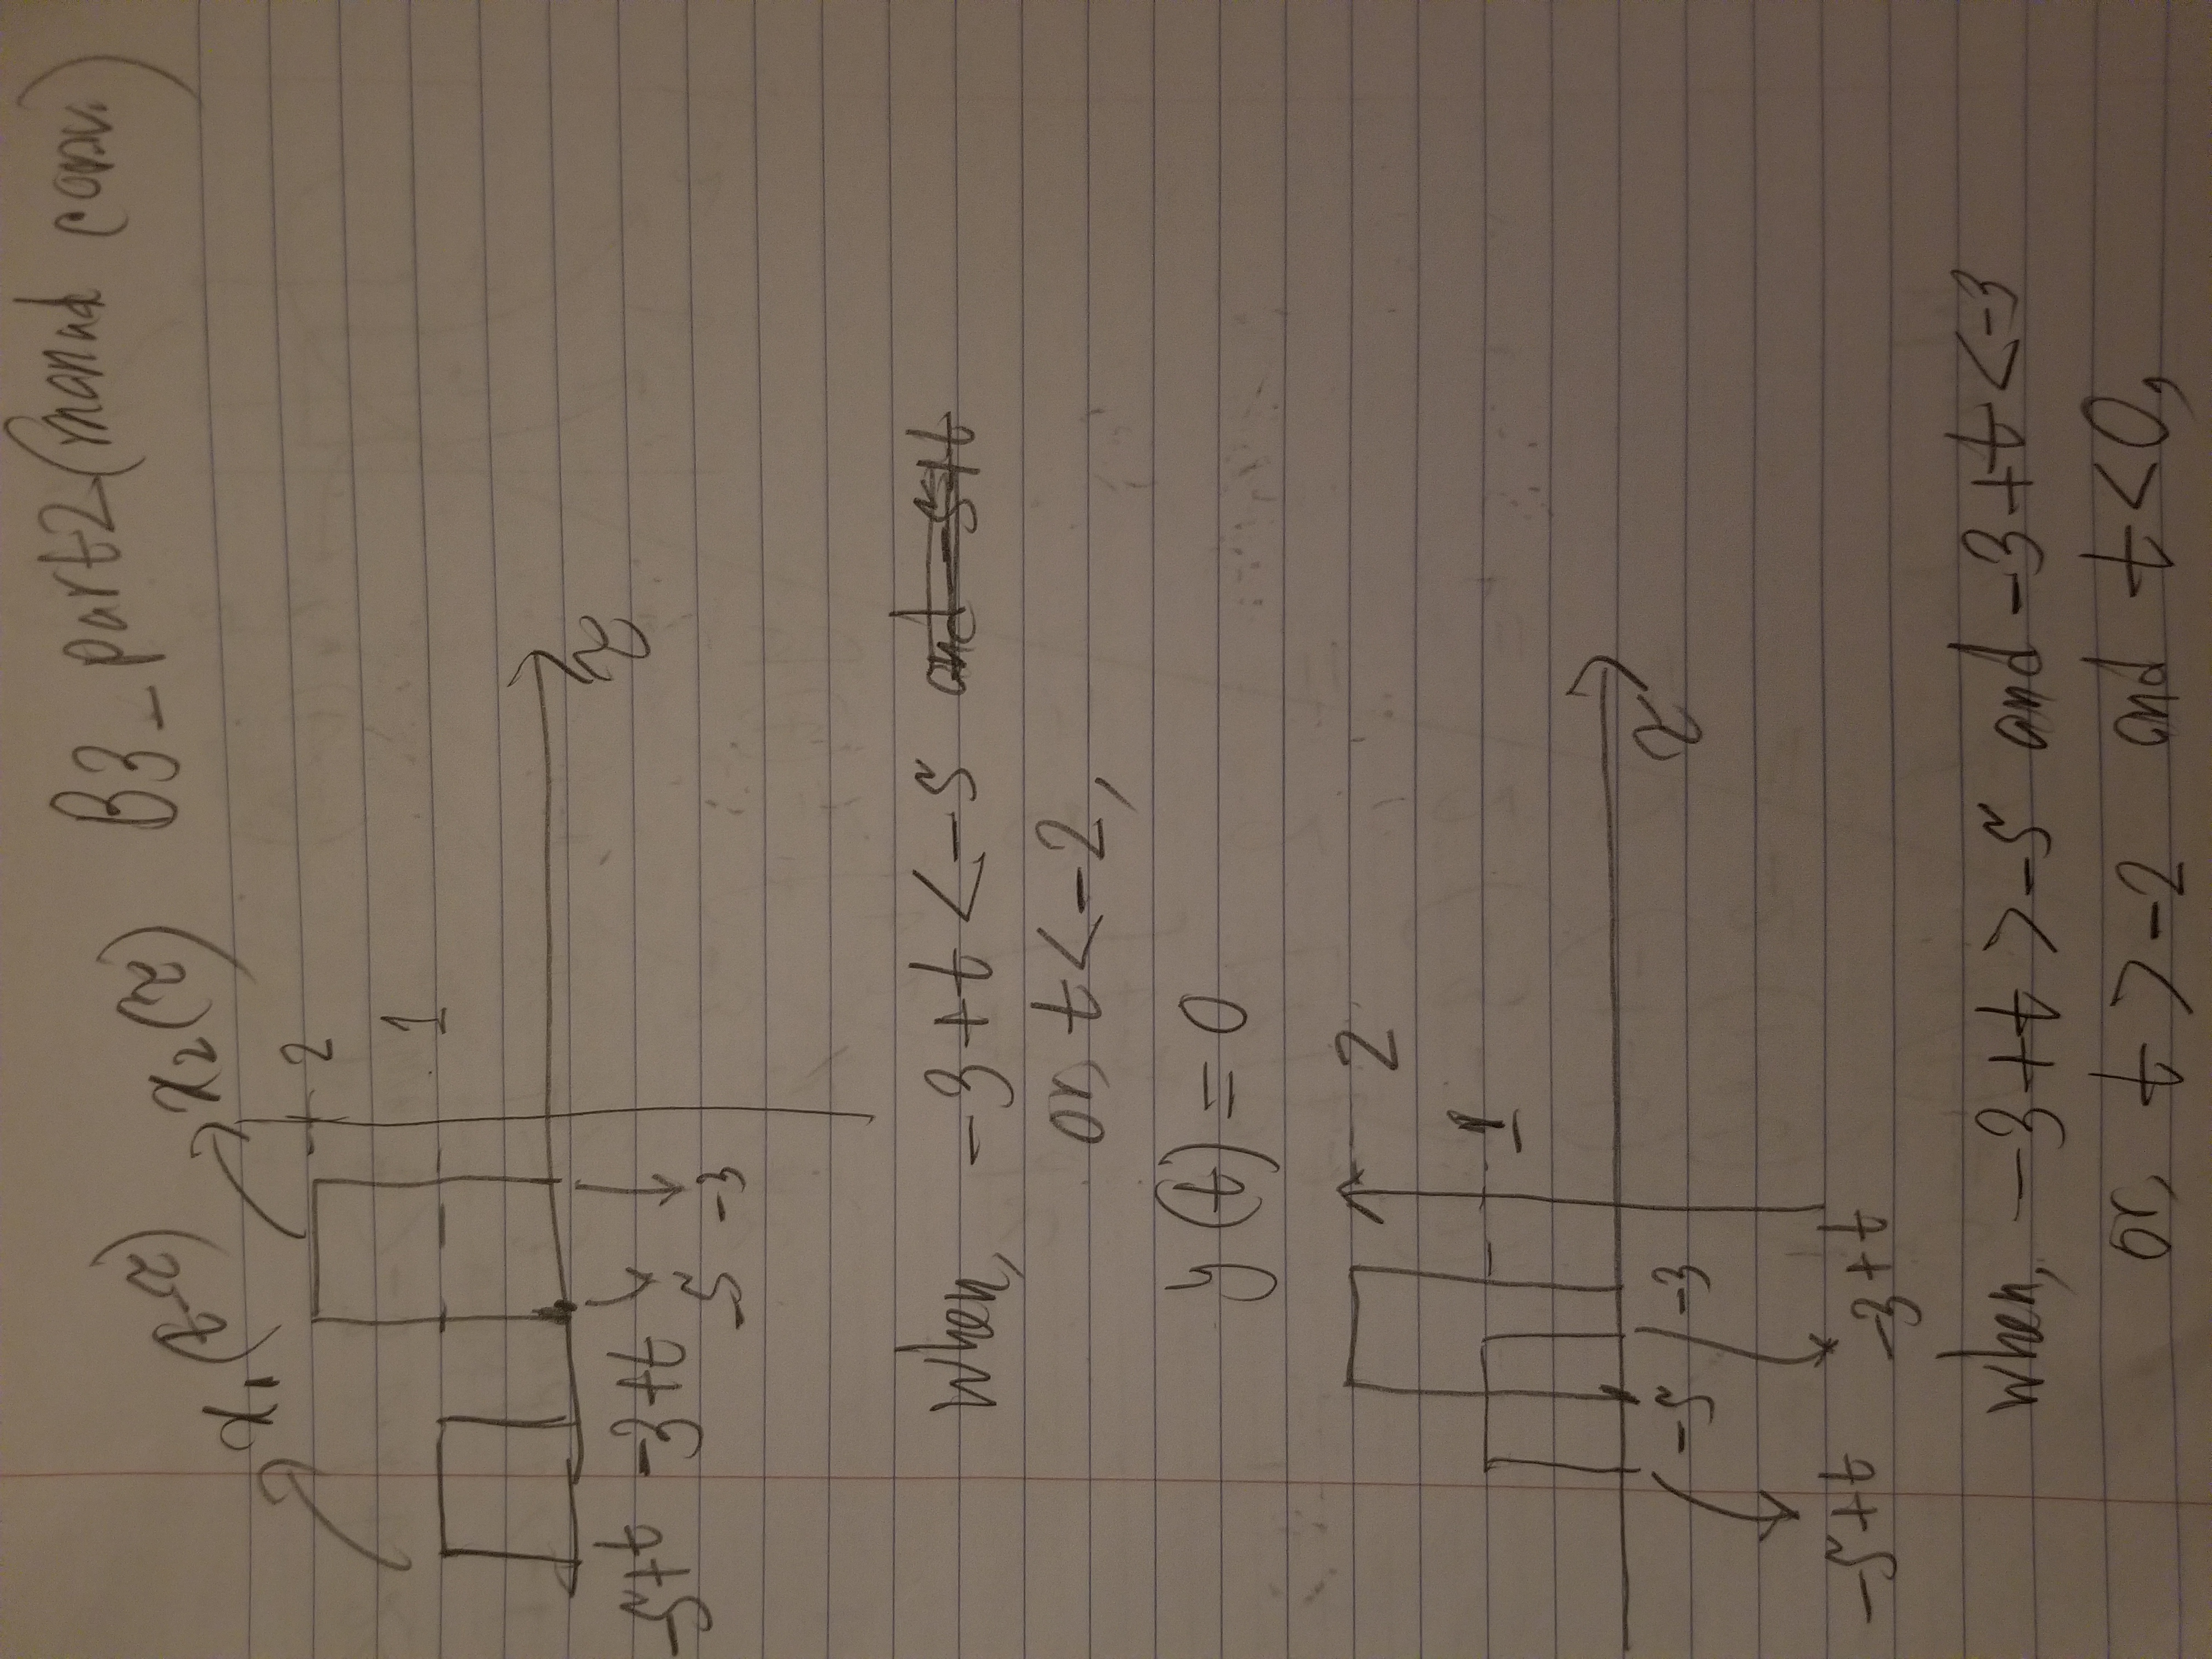 B3_part2(manual conv.)
x₁(t-τ)
x₂(τ)
2
1
τ
-5+t -3+t -5 -3
When, -3+t<-5 and -5+t
or, t<-2,
y(t)=0
2
1
τ
-5 -3
-5+t -3+t
When, -3+t>-5 and -3+t<-3
or, t>-2 and t<0,